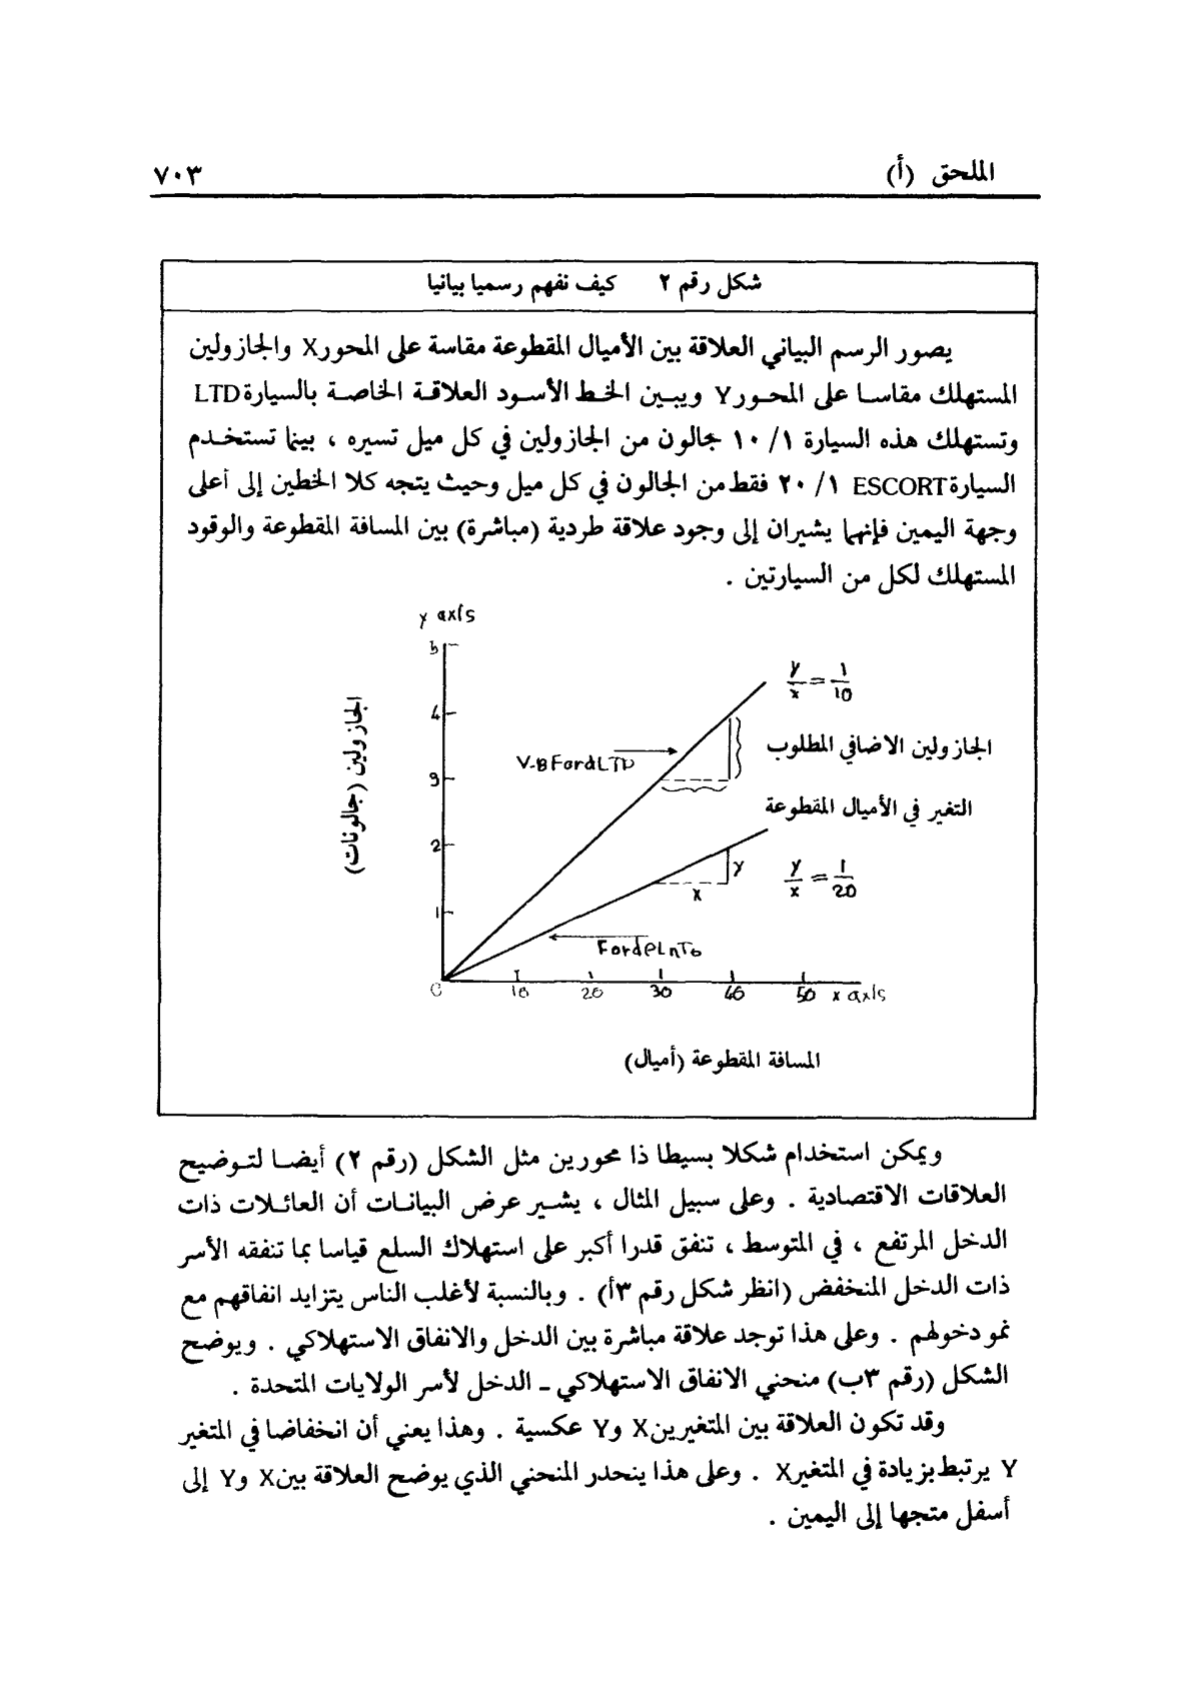 الملحق (أ)
٧٠٣
شكل رقم ٢ كيف نفهم رسميا بيانيا
يصور الرسم البياني العلاقة بين الأميال المقطوعة مقاسة على المحور X والجازولين
المستهلك مقاسا على المحور Y ويبين الخط الأسود العلاقة الخاصة بالسيارة LTD
وتستهلك هذه السيارة ١/ ١٠ جالون من الجازولين في كل ميل تسيره ، بينما تستخدم
السيارة ESCORT ١/ ٢٠ فقط من الجالون في كل ميل وحيث يتجه كلا الخطين إلى أعلى
وجهة اليمين فإنهما يشيران إلى وجود علاقة طردية (مباشرة) بين المسافة المقطوعة والوقود
المستهلك لكل من السيارتين .
y axis
5
y/x = 1/10
4
الجازولين (جالونات)
الجازولين الاضافي المطلوب
V-8 Ford LTD
3
التغير في الأميال المقطوعة
2
y
y/x = 1/20
x
1
0 10 20 30 40 50 x axis
المسافة المقطوعة (أميال)
ويمكن استخدام شكلا بسيطا ذا محورين مثل الشكل (رقم ٢) أيضا لتوضيح
العلاقات الاقتصادية . وعلى سبيل المثال ، يشير عرض البيانات أن العائلات ذات
الدخل المرتفع ، في المتوسط ، تنفق قدرا أكبر على استهلاك السلع قياسا بما تنفقه الأسر
ذات الدخل المنخفض (انظر شكل رقم ٣أ) . وبالنسبة لأغلب الناس يتزايد انفاقهم مع
نمو دخولهم . وعلى هذا توجد علاقة مباشرة بين الدخل والانفاق الاستهلاكي . ويوضح
الشكل (رقم ٣ب) منحني الانفاق الاستهلاكي ـ الدخل لأسر الولايات المتحدة .
وقد تكون العلاقة بين المتغيرين X وY عكسية . وهذا يعني أن انخفاضا في المتغير
Y يرتبط بزيادة في المتغير X . وعلى هذا ينحدر المنحني الذي يوضح العلاقة بين X وY إلى
أسفل متجها إلى اليمين .